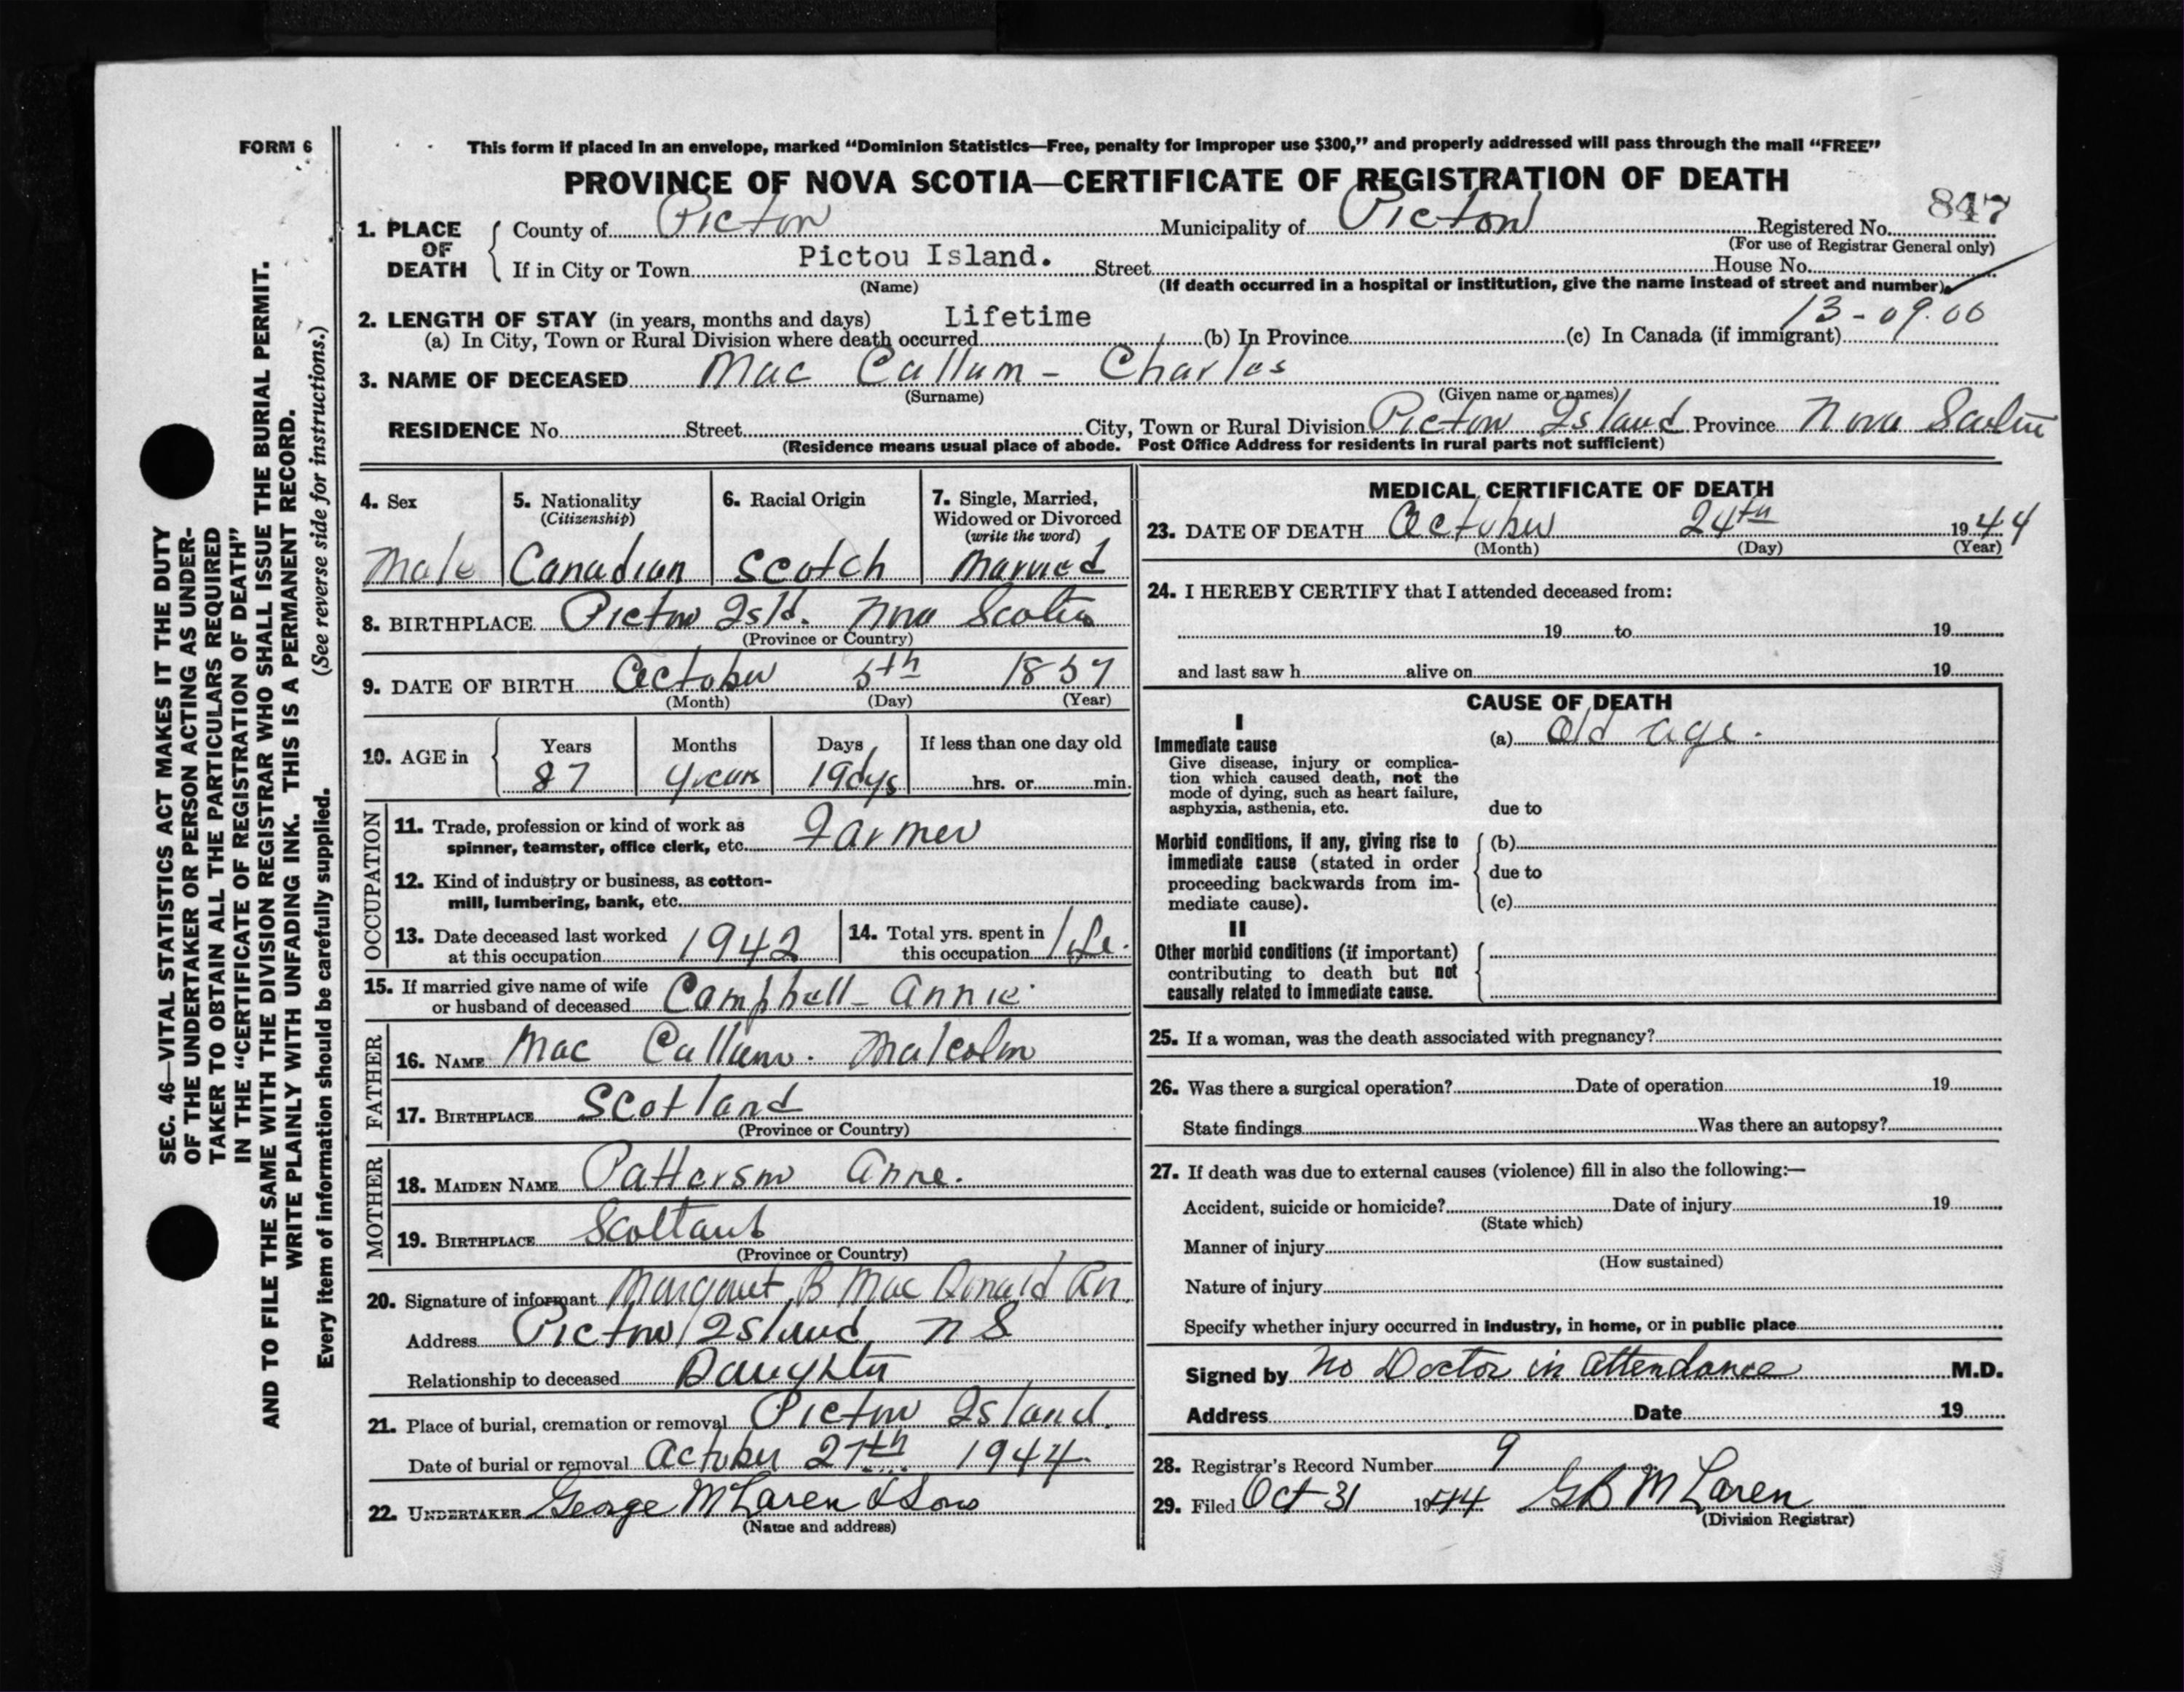 FORM 6
This form if placed in an envelope, marked "Dominion Statistics—Free, penalty for improper use $300," and properly addressed will pass through the mail "FREE"
PROVINCE OF NOVA SCOTIA—CERTIFICATE OF REGISTRATION OF DEATH
847
1. PLACE OF DEATH County of Pictou Municipality of Pictou Registered No.
(For use of Registrar General only)
If in City or Town Pictou Island. Street House No.
(Name) (If death occurred in a hospital or institution, give the name instead of street and number)
2. LENGTH OF STAY (in years, months and days) Lifetime 13-09.00
(a) In City, Town or Rural Division where death occurred (b) In Province (c) In Canada (if immigrant)
3. NAME OF DECEASED Mac Callum - Charles
(Surname) (Given name or names)
RESIDENCE No. Street City, Town or Rural Division Pictou Island Province Nova Scotia
(Residence means usual place of abode. Post Office Address for residents in rural parts not sufficient)
4. Sex 5. Nationality (Citizenship) 6. Racial Origin 7. Single, Married, Widowed or Divorced (write the word)
Male Canadian Scotch Married
8. BIRTHPLACE Pictou Isld. Nova Scotia
(Province or Country)
9. DATE OF BIRTH October 5th 1857
(Month) (Day) (Year)
10. AGE in Years Months Days If less than one day old
87 years 19dys hrs. or min.
OCCUPATION
11. Trade, profession or kind of work as
spinner, teamster, office clerk, etc. Farmer
12. Kind of industry or business, as cotton-
mill, lumbering, bank, etc.
13. Date deceased last worked at this occupation 1942 14. Total yrs. spent in this occupation life.
15. If married give name of wife
or husband of deceased Campbell - Annie
FATHER
16. NAME Mac Callum. Malcolm
17. BIRTHPLACE Scotland
(Province or Country)
MOTHER
18. MAIDEN NAME Patterson Anne.
19. BIRTHPLACE Scotland
(Province or Country)
20. Signature of informant Margaret B Mac Donald Rn.
Address Pictou Island N S
Relationship to deceased Daughter
21. Place of burial, cremation or removal Pictou Island.
Date of burial or removal October 27th 1944
22. UNDERTAKER George McLaren & Sons
(Name and address)
MEDICAL CERTIFICATE OF DEATH
23. DATE OF DEATH October 24th 1944
(Month) (Day) (Year)
24. I HEREBY CERTIFY that I attended deceased from:
19 to 19
and last saw h alive on 19
CAUSE OF DEATH
I
Immediate cause (a) Old age.
Give disease, injury or complica-
tion which caused death, not the
mode of dying, such as heart failure,
asphyxia, asthenia, etc. due to
Morbid conditions, if any, giving rise to (b)
immediate cause (stated in order
proceeding backwards from im- due to
mediate cause). (c)
II
Other morbid conditions (if important)
contributing to death but not
causally related to immediate cause.
25. If a woman, was the death associated with pregnancy?
26. Was there a surgical operation? Date of operation 19
State findings Was there an autopsy?
27. If death was due to external causes (violence) fill in also the following:—
Accident, suicide or homicide? Date of injury 19
(State which)
Manner of injury
(How sustained)
Nature of injury
Specify whether injury occurred in industry, in home, or in public place
Signed by No Doctor in attendance M.D.
Address Date 19
28. Registrar's Record Number 9
29. Filed Oct 31 1944 G B McLaren
(Division Registrar)
SEC. 46—VITAL STATISTICS ACT MAKES IT THE DUTY
OF THE UNDERTAKER OR PERSON ACTING AS UNDER-
TAKER TO OBTAIN ALL THE PARTICULARS REQUIRED
IN THE "CERTIFICATE OF REGISTRATION OF DEATH"
AND TO FILE THE SAME WITH THE DIVISION REGISTRAR WHO SHALL ISSUE THE BURIAL PERMIT.
WRITE PLAINLY WITH UNFADING INK. THIS IS A PERMANENT RECORD.
Every item of information should be carefully supplied. (See reverse side for instructions.)